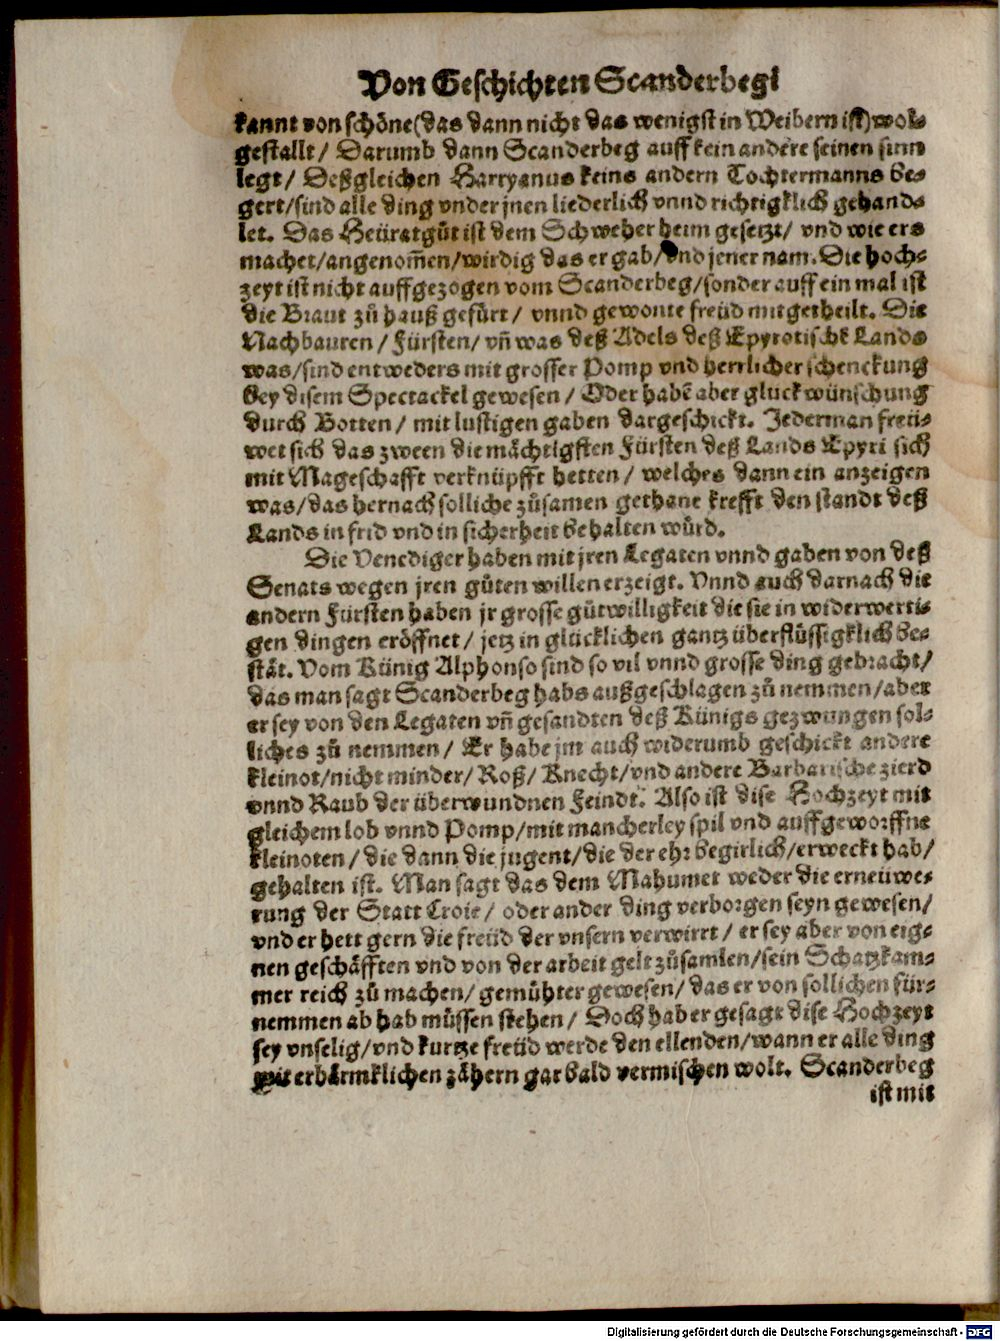 Von Geschichten Scanderbegi
kannt von schöne (das dann nicht das wenigst in Weibern ist) wol-
gestallt / Darumb dann Scanderbeg auff kein andere seinen sinn
legt / Deßgleichen Harryanus keins andern Tochtermanns be-
gert / sind alle ding vnder jnen liederlich vnnd richtigklich gehand-
let. Das Heüratgůt ist dem Schweher heim gesetzt / vnd wie ers
machet / angenom̃en / wirdig das er gab / vnd jener nam. Die hoch-
zeyt ist nicht auffgezogen vom Scanderbeg / sonder auff ein mal ist
die Braut zů hauß gefürt / vnnd gewonte freüd mitgetheilt. Die
Nachbauren / Fürsten / vñ was deß Adels deß Epyrotischẽ Lands
was / sind entweders mit grosser Pomp vnd herrlicher schenckung
bey disem Spectackel gewesen / Oder habẽ aber gluckwünschung
durch Botten / mit lustigen gaben dargeschickt. Jederman freü-
wet sich das zween die mächtigsten Fürsten deß Lands Epyri sich
mit Mageschafft verknüpfft hetten / welches dann ein anzeigen
was / das hernach solliche zůsamen gethane krefft den standt deß
Lands in frid vnd in sicherheit behalten würd.
Die Venediger haben mit jren Legaten vnnd gaben von deß
Senats wegen jren gůten willen erzeigt. Vnnd auch darnach die
andern Fürsten haben jr grosse gůtwilligkeit die sie in widerwerti-
gen dingen eröffnet / jetz in glücklichen gantz überflüssigklich be-
stät. Vom Künig Alphonso sind so vil vnnd grosse ding gebracht /
das man sagt Scanderbeg habs außgeschlagen zů nemmen / aber
er sey von den Legaten vñ gesandten deß Künigs gezwungen sol-
liches zů nemmen / Er habe jm auch widerumb geschickt andere
kleinot / nicht minder / Roß / Knecht / vnd andere Barbarische zierd
vnnd Raub der überwundnen Feindt. Also ist dise Hochzeyt mit
gleichem lob vnnd Pomp / mit mancherley spil vnd auffgeworffne
kleinoten / die dann die jugent / die der ehr begirlich / erweckt hab /
gehalten ist. Man sagt das dem Mahumet weder die erneüwe-
rung der Statt Croie / oder ander ding verborgen seyn gewesen /
vnd er hett gern die freüd der vnsern verwirrt / er sey aber von eig-
nen geschäfften vnd von der arbeit gelt zůsamlen / sein Schatzkam-
mer reich zů machen / gemühter gewesen / das er von sollichen für-
nemmen ab hab müssen stehen / Doch hab er gesagt dise Hochzeyt
sey vnselig / vnd kurtze freüd werde den ellenden / wann er alle ding
mit erbärmklichen zähern gar bald vermischen wolt. Scanderbeg
ist mit
Digitalisierung gefördert durch die Deutsche Forschungsgemeinschaft - DFG